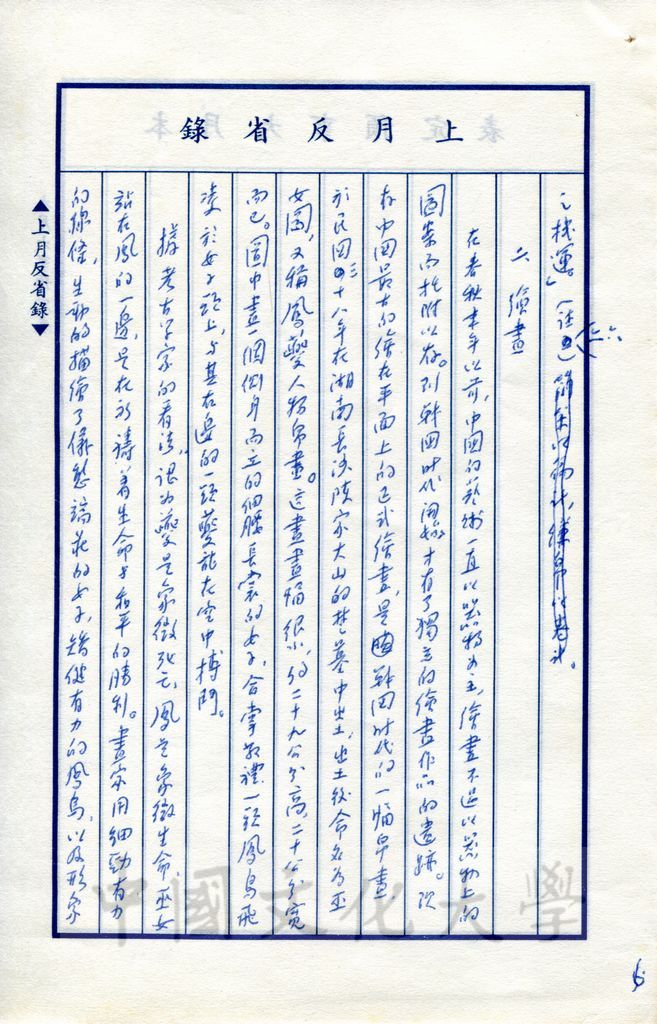 上月反省錄
之機運。」（註
二、繪畫
在春秋末年以前，中國的藝術一直以器物為主，繪畫不過以器物上的
圖案而托附以存。到戰國時代開始才有了獨立的繪畫作品的遺跡。現
存中國最古的繪在平面上的正式繪畫，是戰國時代的一幅帛畫
於民國三十八年在湖南長沙陳家大山的楚墓中出土，出土後命名為巫
女圖，又稱鳳夔人物帛畫。這畫畫幅很小，約二十九公分高，二十公分寬
而已。圖中畫一個側身而立的細腰長裳的女子，合掌敬禮一頭鳳鳥飛
凌於女子頭上，与其左邊的一頭夔龍在空中搏鬥。
據考古学家的看法，認為夔是象徵死亡，鳳是象徵生命，巫女
站在鳳的一邊，是在祈禱着生命与和平的勝利。畫家用細勁有力
的線條，生動的描繪了儀態端莊的女子，矯健有力的鳳鳥，以及形象
▲上月反省錄▼
中國文化大學
6